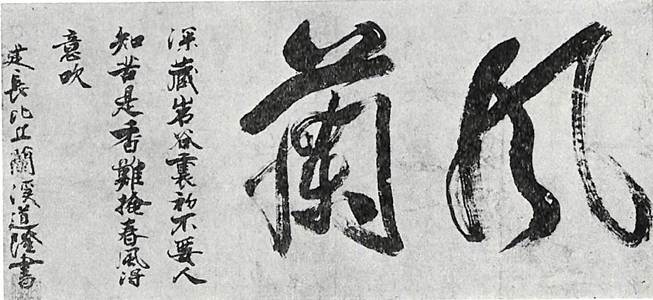 風蘭
深藏岩谷裏初不要人
知若是香難掩春風得
意吹
建長比丘蘭溪道隆書